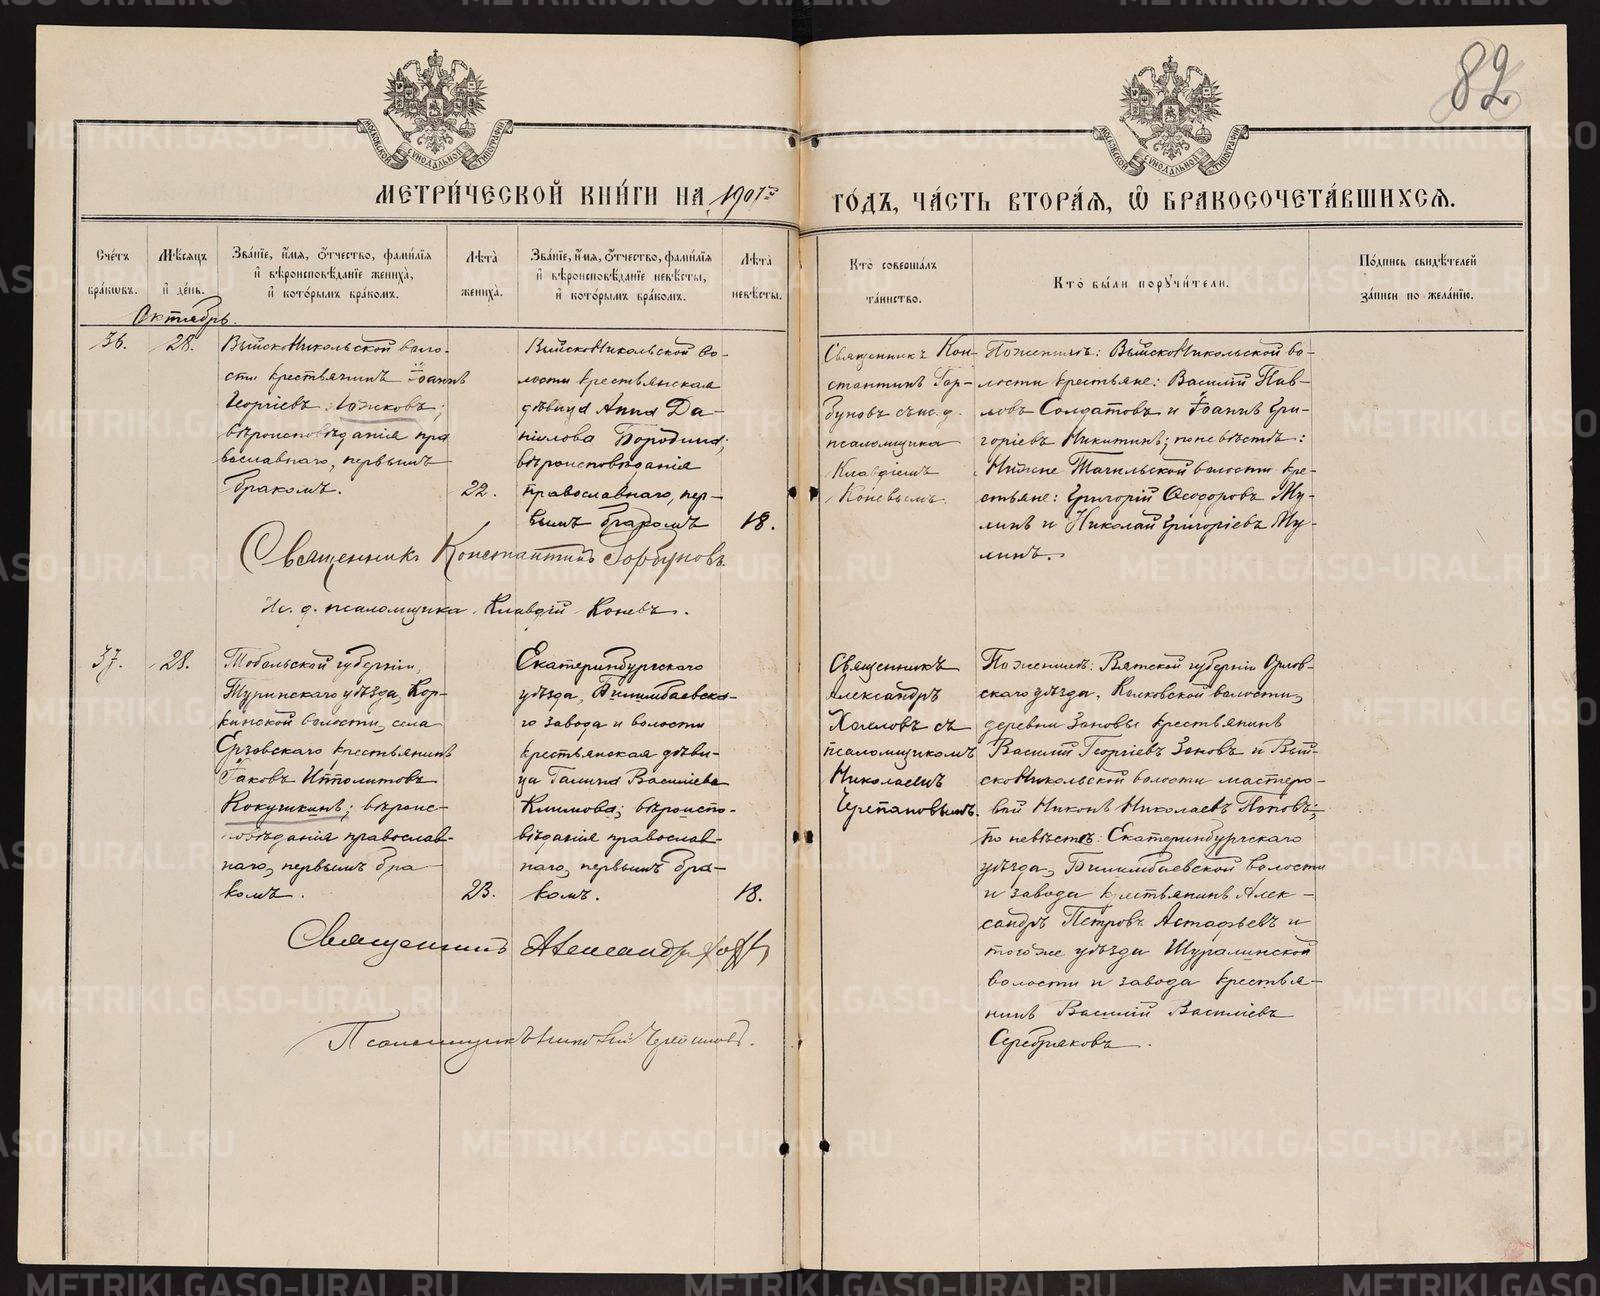 82
МОСКОВСКОЙ СУНОДАЛЬНОЙ ТИПОГРАФІИ
МОСКОВСКОЙ СУНОДАЛЬНОЙ ТИПОГРАФІИ
МЕТРИ́ЧЕСКОЙ КНИ́ГИ НА 1901й
ГО́ДЪ, ЧА́СТЬ ВТОРА́Я, Ѽ БРАКОСОЧЕТА́ВШИХСЯ.
Сче́тъ бра́ковъ.
Мѣ́сяцъ и҆ де́нь.
Зва́ніе, и҆́мя, ѻ҆́тчество, фами́лія
и҆ вѣроисповѣ́даніе жениха̀,
и҆ кото́рымъ бра́комъ.
Лѣ́та жениха̀.
Зва́ніе, и҆́мя, ѻ҆́тчество, фами́лія
и҆ вѣроисповѣ́даніе невѣ́сты,
и҆ кото́рымъ бра́комъ.
Лѣ́та невѣ́сты.
Кто̀ соверша́лъ
та́инство.
Кто̀ бы́ли поручи́тели.
По́дпись свидѣ́телей
за́писи по жела́нію.
Октябрь.
36.
28.
Выйсконикольской воло-
сти крестьянинъ Іоаннъ
Георгіевъ Ложковъ;
вѣроисповѣданія пра
вославнаго, первымъ
бракомъ.
22.
Выйсконикольской во-
лости крестьянская
дѣвица Анна Да-
нілова Бородина;
вѣроисповѣданія
православнаго, пер-
вымъ бракомъ
18.
Священникъ Кон-
стантинъ Гор-
буновъ съ и. д.
псаломщика
Клавдіемъ
Коневымъ.
По женихѣ: Выйсконикольской во-
лости крестьяне: Василій Пав-
ловъ Солдатовъ и Іоаннъ Гри-
горіевъ Никитинъ; по невѣстѣ:
Нижне Тагильской волости кре-
стьяне: Григорій Ѳеодоровъ Му-
линъ и Николай Григоріевъ Му-
линъ.
Священникъ Константинъ Горбуновъ
Ис. д. псаломщика Клавдій Коневъ.
37.
28.
Тобольской губерніи,
Туринскаго уѣзда, Кор-
кинской волости, села
Ерзовскаго крестьянинъ
Іаковъ Ипполитовъ
Кокушкинъ; вѣроис-
повѣданія православ-
наго, первымъ бра
комъ.
23.
Екатеринбургскаго
уѣзда, Билимбаевска-
го завода и волости
крестьянская дѣви-
ца Галина Васильева
Климова; вѣроиспо-
вѣданія православ-
наго, первымъ бра-
комъ.
18.
Священникъ
Александръ
Хохловъ съ
псаломщикомъ
Николаемъ
Черепановымъ.
По женихѣ: Вятской губерніи Орлов-
скаго уѣзда, волости,
деревни Зоновы крестьянинъ
Василій Георгіевъ Зоновъ и Вый-
сконикольской волости мастеро-
вой Никонъ Николаевъ Поповъ;
по невѣстѣ: Екатеринбургскаго
уѣзда, Билимбаевской волости
и завода крестьянинъ Алек-
сандръ Петровъ Астафьевъ и
того же уѣзда Шуралинской
волости и завода крестья-
нинъ Василій Васильевъ
Серебряковъ.
Священникъ Александръ
Псаломщикъ Николай Черепановъ.
METRIKI.GASO-URAL.RU